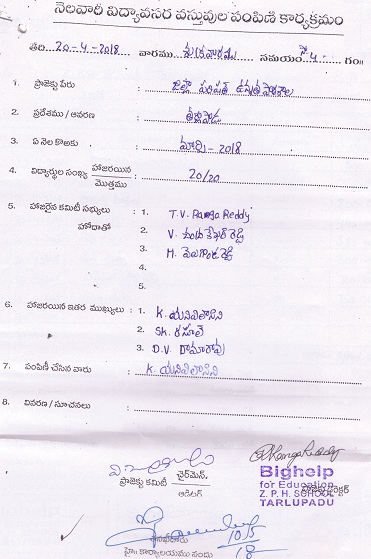 నెలవారీ విద్యావసర వస్తువుల పంపిణి కార్యక్రమం
తేది. 20-4-2018 వారము శుక్రవారము సమయం 4 గం॥
1. ప్రాజెక్టు పేరు : జిల్లా పరిషత్ ఉన్నత పాఠశాల
2. ప్రదేశము / ఆవరణ : తర్లుపాడు
3. ఏ నెల కొఱకు : మార్చి - 2018
4. విద్యార్థుల సంఖ్య హాజరయిన / మొత్తము : 20/20
5. హాజరైన కమిటీ సభ్యులు : 1. T.V. Ranga Reddy
హోదాతో 2. V. చంద్రశేఖర్ రెడ్డి
3. H. రెడ్డి
4.
5.
6. హాజరయిన ఇతర ముఖ్యులు : 1. K.
2. Sk. రసూల్
3. D.V. రామారావు
7. పంపిణీ చేసిన వారు : K.
8. వివరణ / సూచనలు :
ప్రాజెక్టు కమిటీ ఛైర్మెన్.
ఆడిటర్
Bighelp
for Education
Z. P. H. SCHOOL
TARLUPADU
10/5/18
హై॥ కార్యాలయము నందు